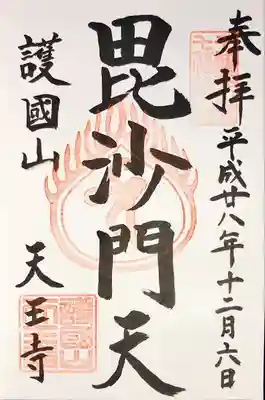 奉拝 平成廿八年十二月六日
毘沙門天
護國山 天王寺